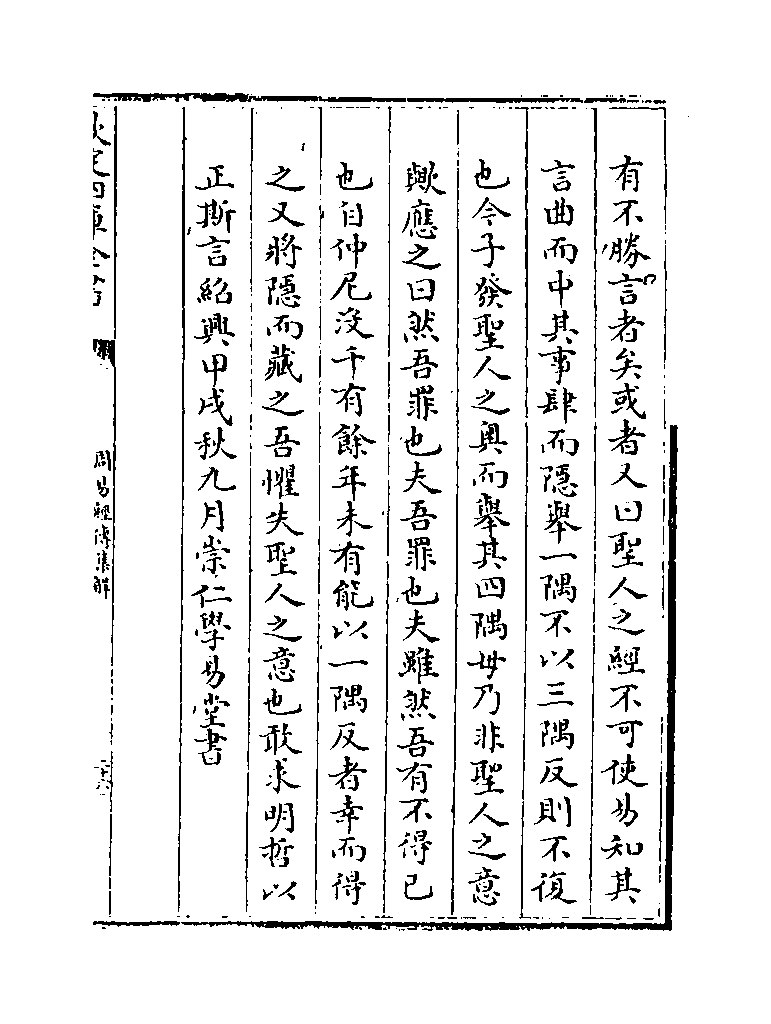 有不勝言者矣或者又曰聖人之經不可使易知其
言曲而中其事肆而隱舉一隅不以三隅反則不復
也今子發聖人之奥而舉其四隅毋乃非聖人之意
歟應之曰然吾罪也夫吾罪也夫雖然吾有不得已
也自仲尼沒千有餘年未有能以一隅反者幸而得
之又將隱而藏之吾懼失聖人之意也敢求明哲以
正斯言紹興甲戌秋九月崇仁學易堂書
欽定四庫全書
周易經傳集解